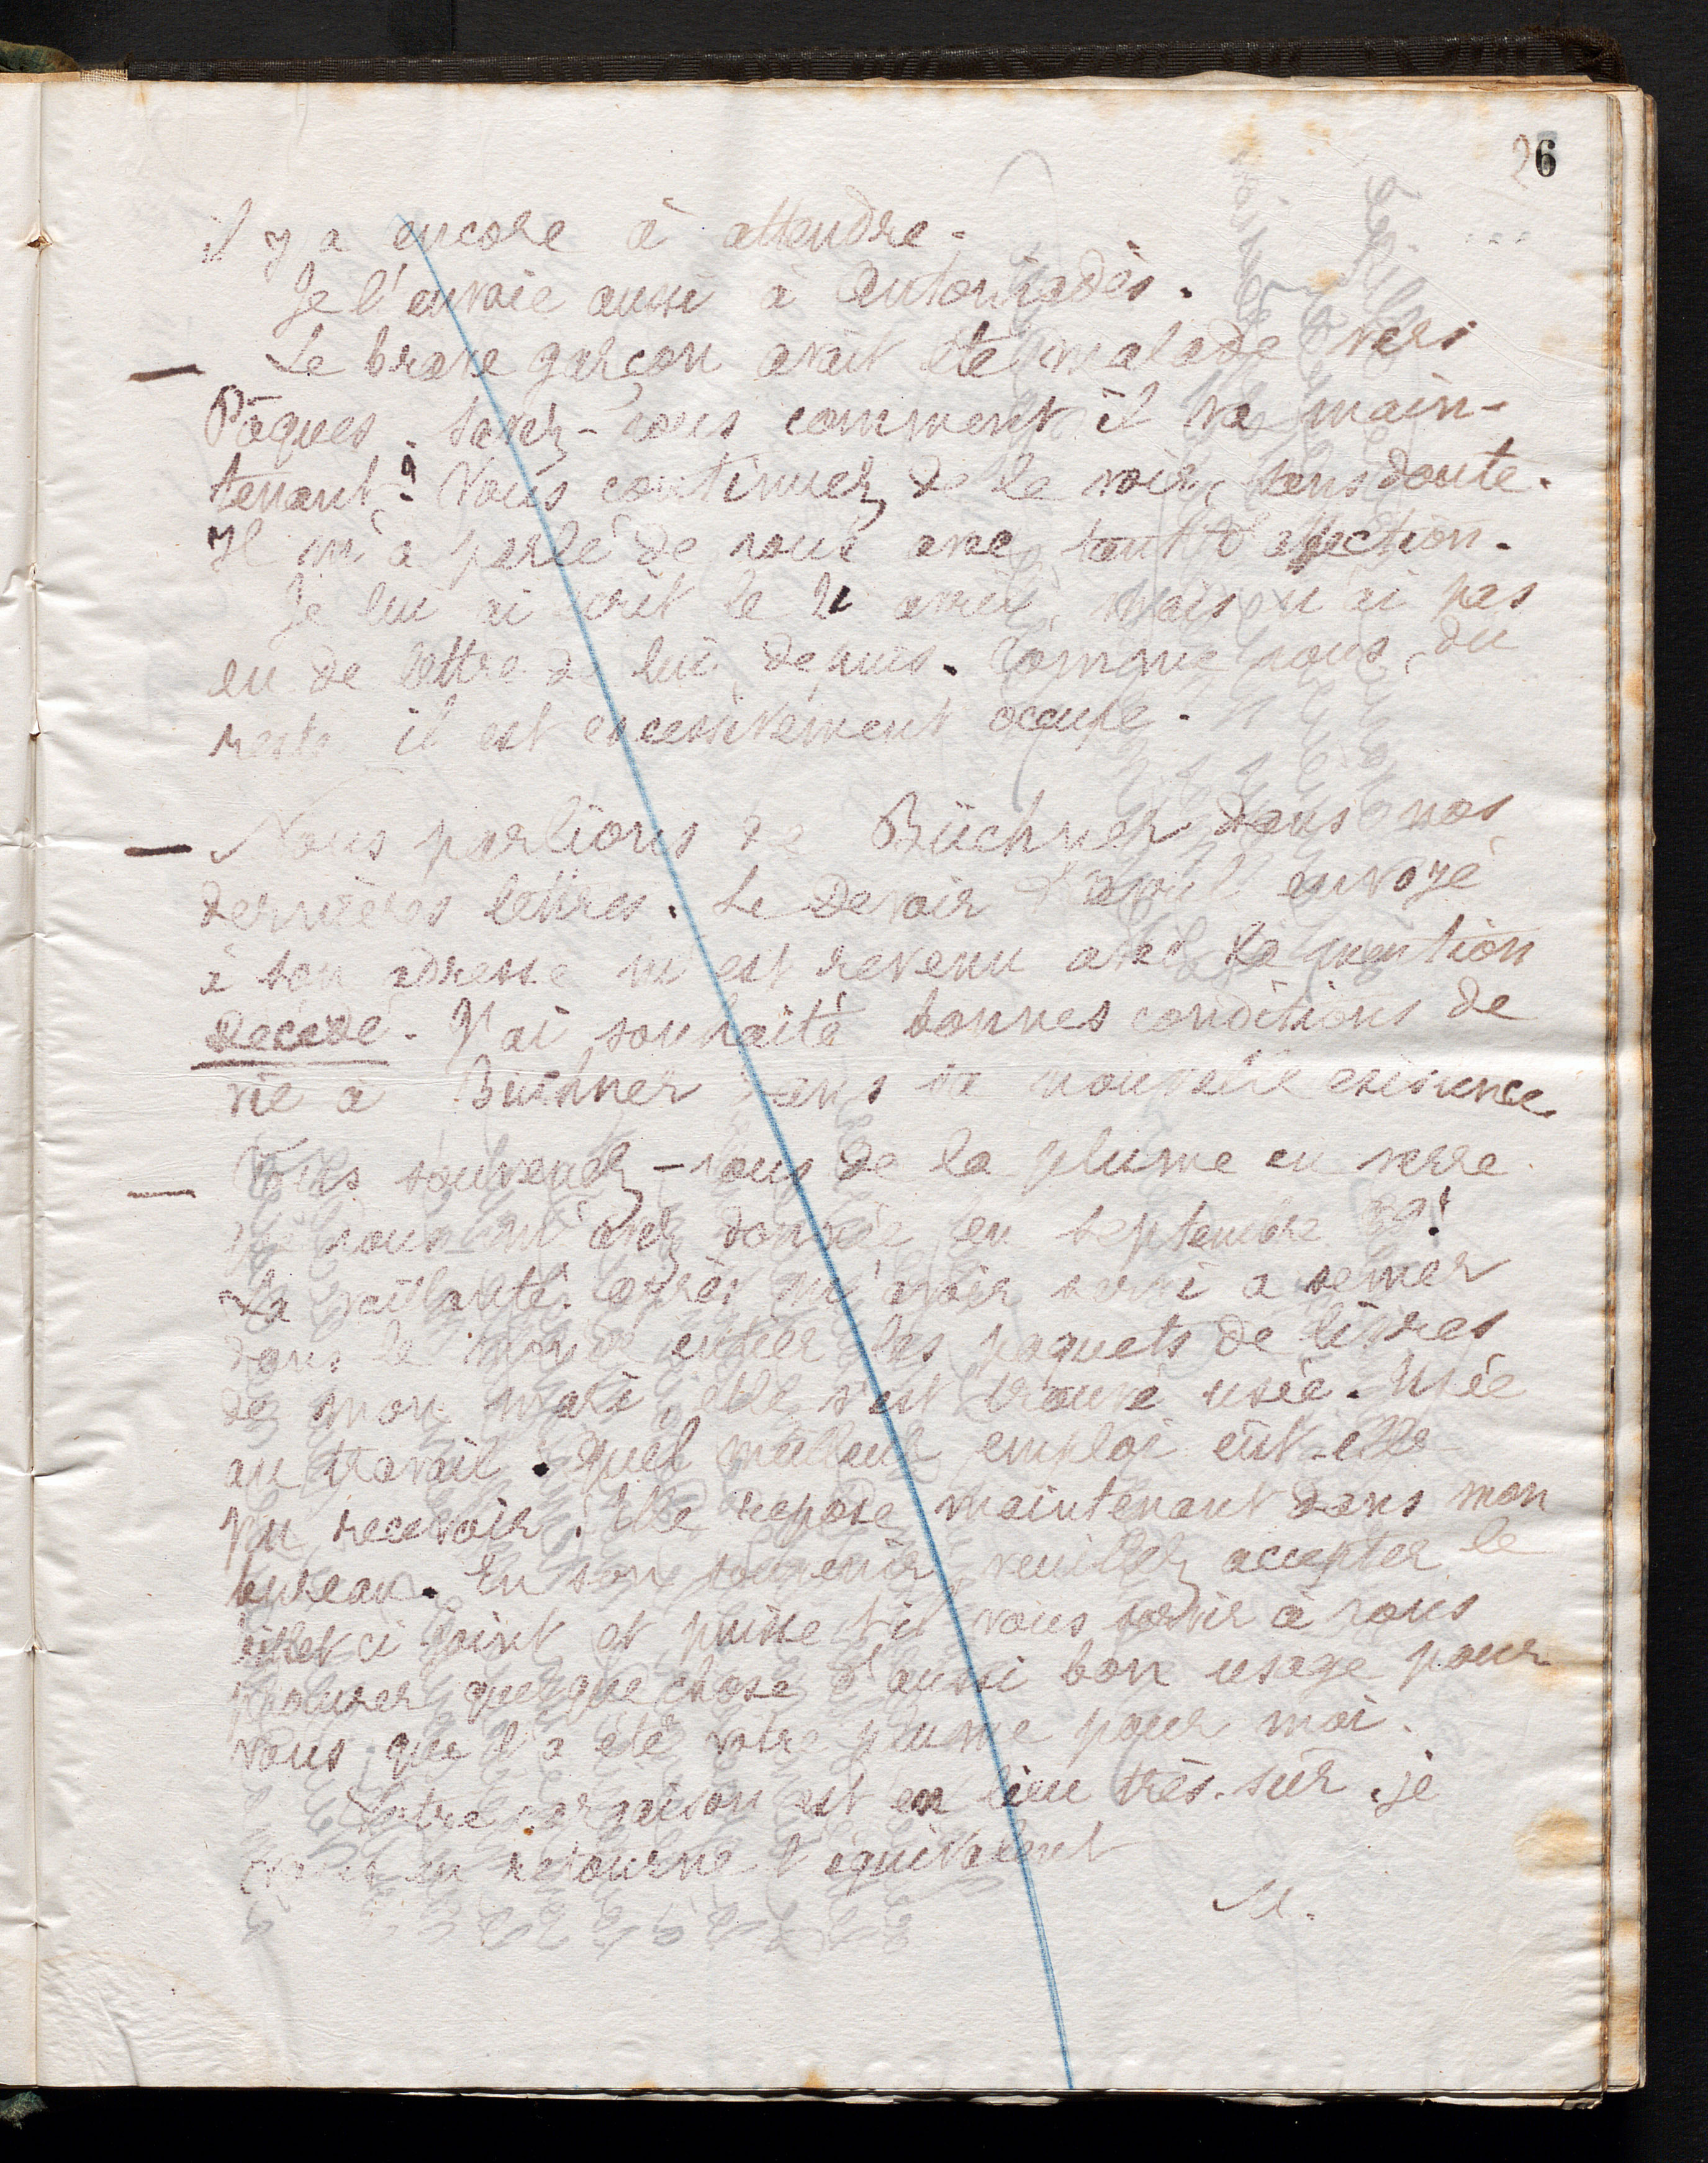 26
il y a encore à attendre.
Je l'envoie aussi à Antoniadès.
— Le brave garçon avait été malade vers
Pâques. Savez-vous comment il va main-
tenant? Vous continuez de le voir, sans doute.
Il m'a parlé de vous avec tant d'affection.
Je lui ai écrit le 21 avril, mais n'ai pas
eu de lettre de lui depuis. Comme vous, du
reste il est excessivement occupé.
— Nous parlions de Büchner dans nos
dernières lettres. Le Devoir d'avril envoyé
à son adresse m'est revenu avec la mention
décédé. J'ai souhaité bonnes conditions de
vie à Büchner dans sa nouvelle existence
— Vous souvenez-vous de la plume en verre
que vous m'avez donnée en septembre ?
La vaillante. après m'avoir servi à semer
dans le monde entier les paquets de livres
de mon mari, elle s'est trouvé usée. Usée
au travail. quel meilleur emploi eût-elle
pu recevoir! Elle repose maintenant dans mon
bureau. En son souvenir, veuillez accepter le
billet ci joint et puisse t-il vous servir à vous
procurer quelque chose d'aussi bon usage pour
vous que l'a été votre plume pour moi.
Votre cargaison est en lieu très-sûr. je
vous en retourne l'équivalent
M.